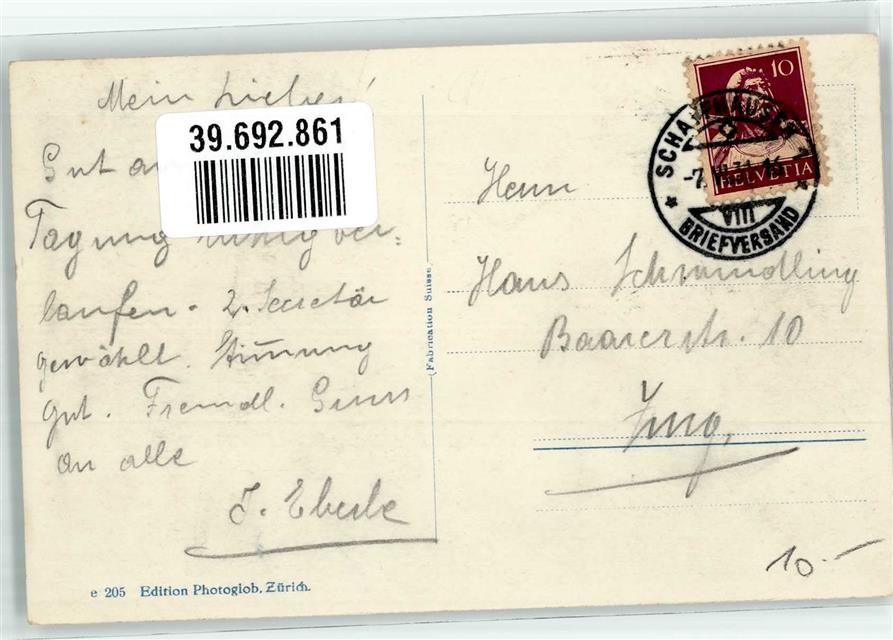 Mein Lieber!
39.692.861
Gut
Tagung ruhig ver=
laufen. 2. Secretär
gewählt. Stimmung
gut. Freundl. Gruss
an alle
J. Eberle
e 205 Edition Photoglob, Zürich.
Fabrication Suisse
10
HELVETIA
SCHAFFHAUSEN
VIII
BRIEFVERSAND
Herrn
Hans Schwindling
Baarerstr. 10
Zug.
10.-